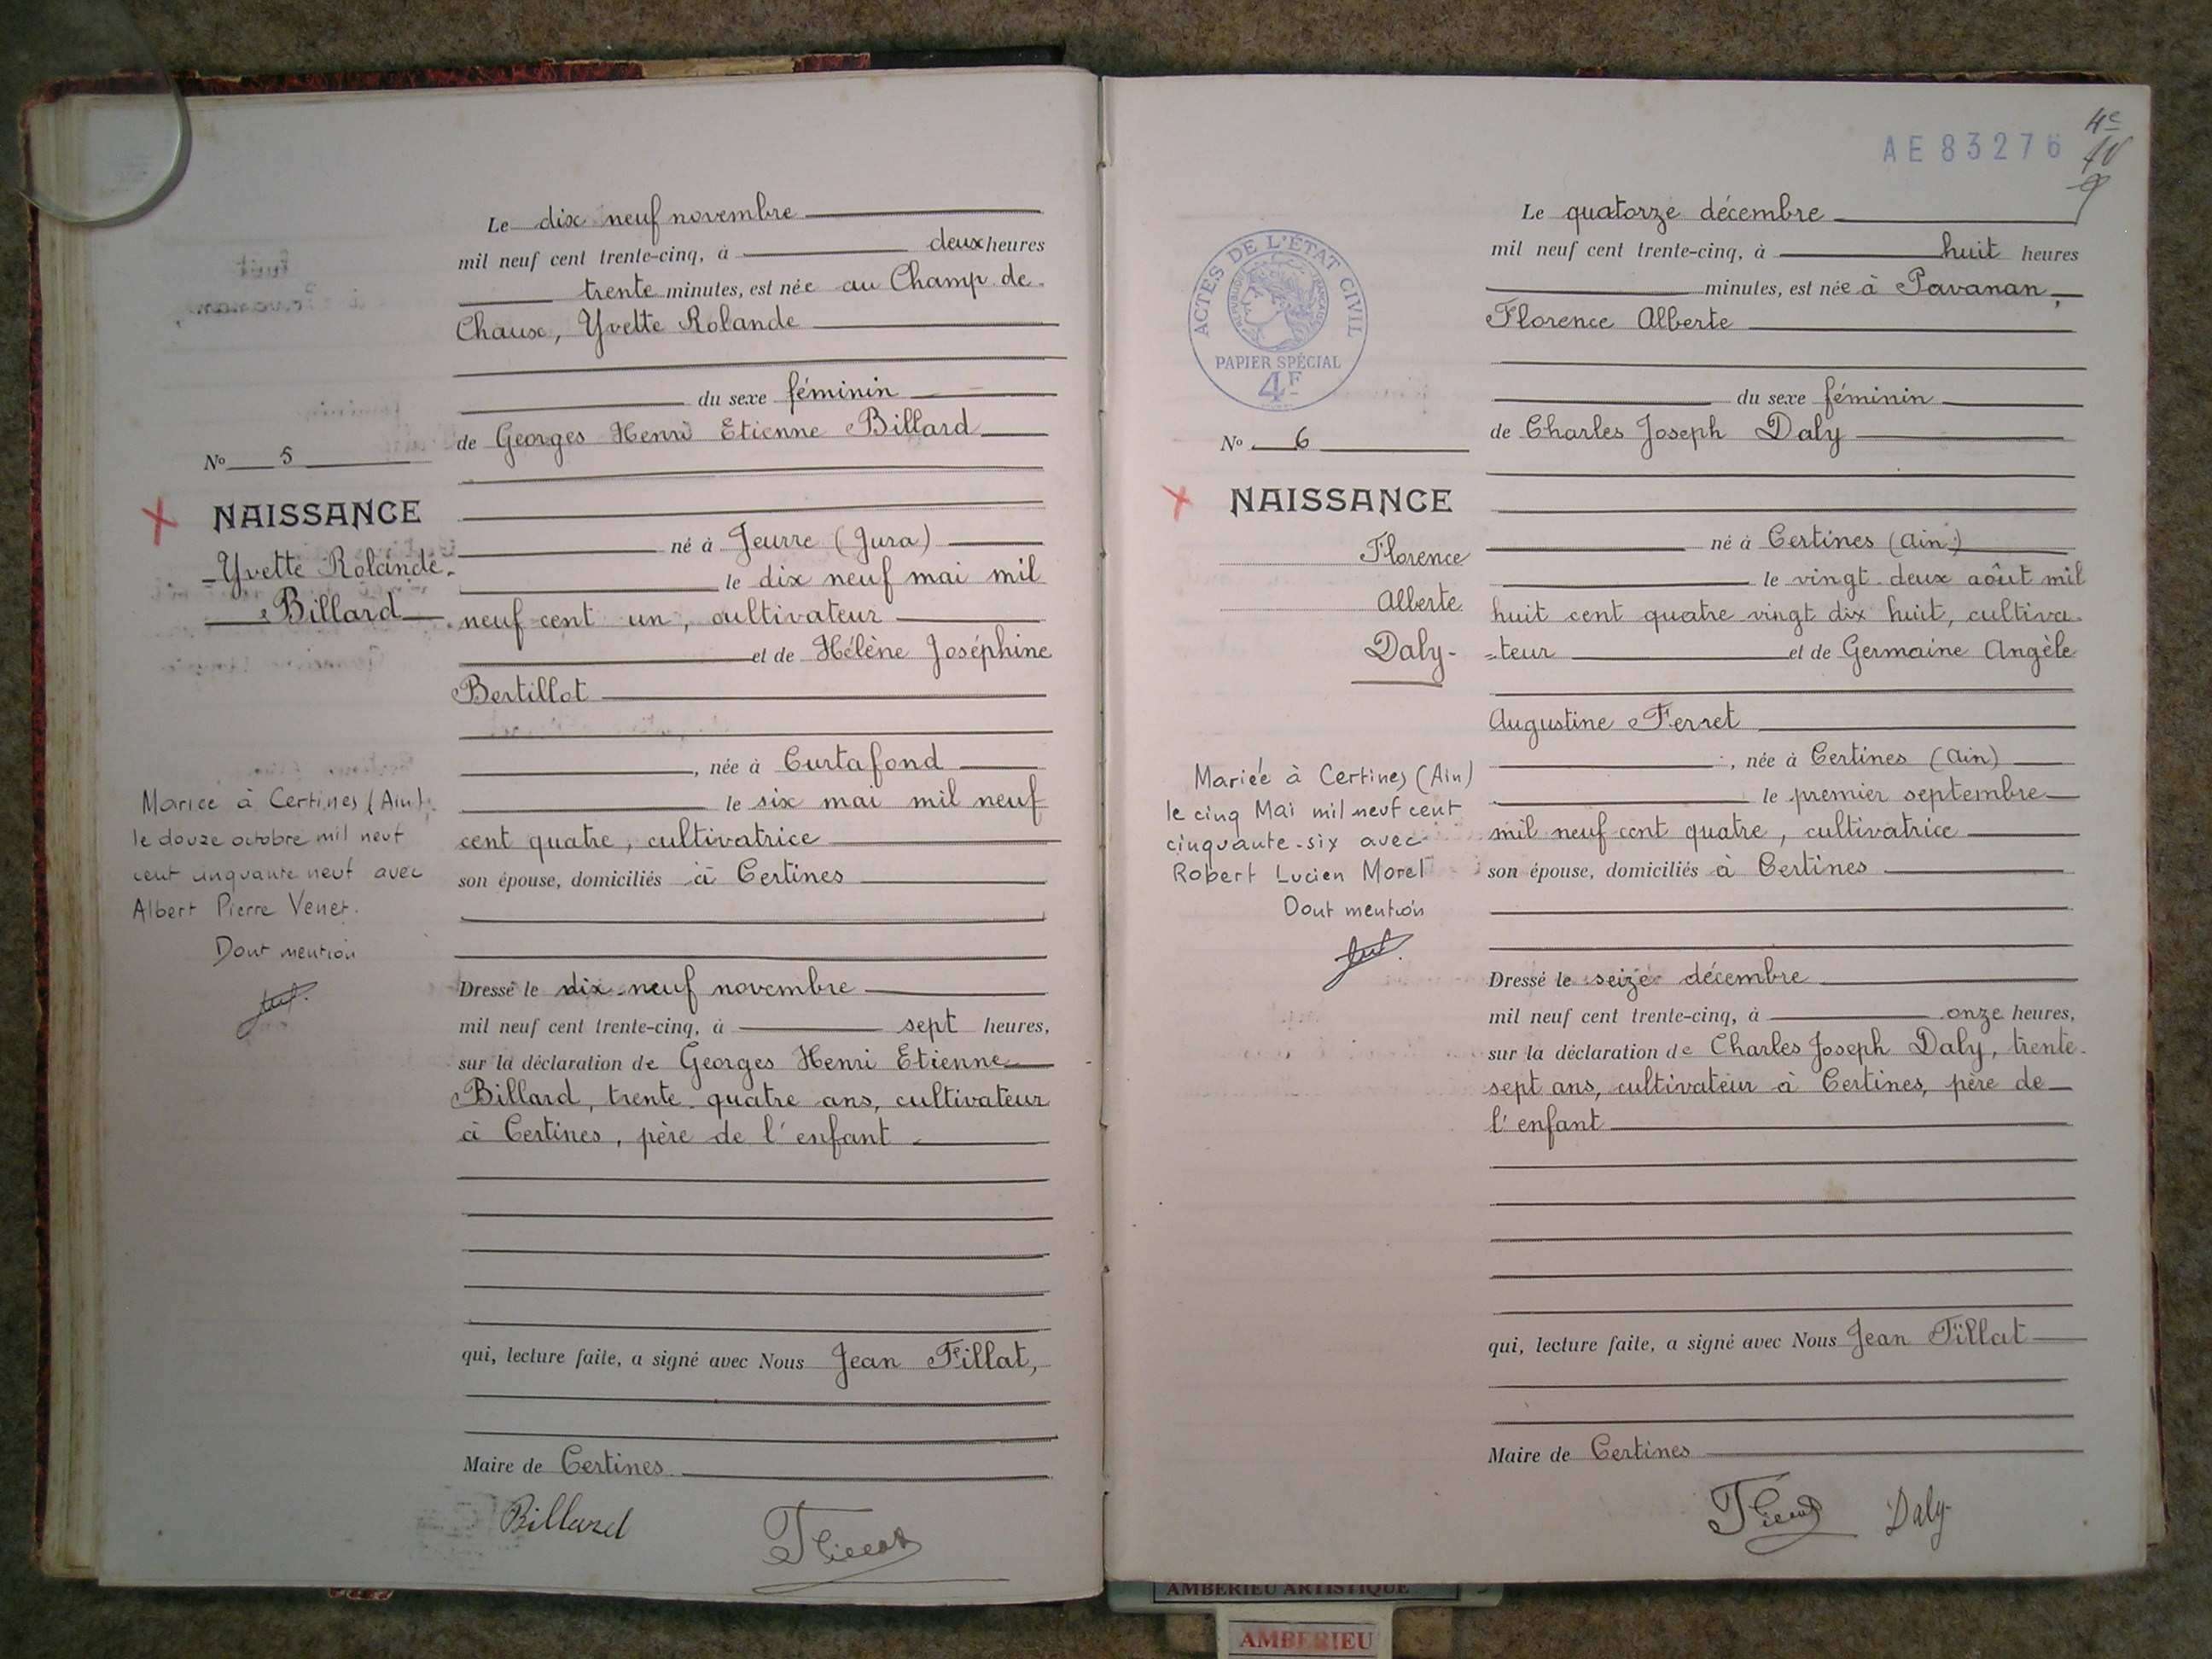 Le dix neuf novembre
mil neuf cent trente-cinq, à deux heures
trente minutes, est née au Champ de
Chaux, Yvette Rolande
du sexe féminin
de Georges Henri Etienne Billard
No 5
NAISSANCE
Yvette Rolande
Billard
né à Jeurre (Jura)
le dix neuf mai mil
neuf cent un, cultivateur
et de Hélène Joséphine
Bertillot
, née à Curtafond
le six mai mil neuf
cent quatre, cultivatrice
son épouse, domiciliés à Certines
Mariée à Certines (Ain)
le douze octobre mil neuf
cent cinquante neuf avec
Albert Pierre Venet.
Dont mention
Dressé le dix-neuf novembre
mil neuf cent trente-cinq, à sept heures,
sur la déclaration de Georges Henri Etienne
Billard, trente quatre ans, cultivateur
à Certines, père de l'enfant
qui, lecture faite, a signé avec Nous Jean Fillat,
Maire de Certines
Billard
AE 83276
4e
Le quatorze décembre
mil neuf cent trente-cinq, à huit heures
minutes, est née à Pavanan,
Florence Alberte
du sexe féminin
de Charles Joseph Daly
ACTES DE L'ÉTAT CIVIL
RÉPUBLIQUE FRANÇAISE
PAPIER SPÉCIAL
4F
No 6
NAISSANCE
Florence
Alberte
Daly
né à Certines (Ain)
le vingt-deux août mil
huit cent quatre vingt dix huit, cultiva-
teur et de Germaine Angèle
Augustine Ferret
, née à Certines (Ain)
le premier septembre
mil neuf cent quatre, cultivatrice
son épouse, domiciliés à Certines
Mariée à Certines (Ain)
le cinq Mai mil neuf cent
cinquante-six avec
Robert Lucien Morel
Dont mention
Dressé le seize décembre
mil neuf cent trente-cinq, à onze heures,
sur la déclaration de Charles Joseph Daly, trente-
sept ans, cultivateur à Certines, père de
l'enfant
qui, lecture faite, a signé avec Nous Jean Fillat
Maire de Certines
Daly
AMBERIEU ARTISTIQUE
AMBERIEU